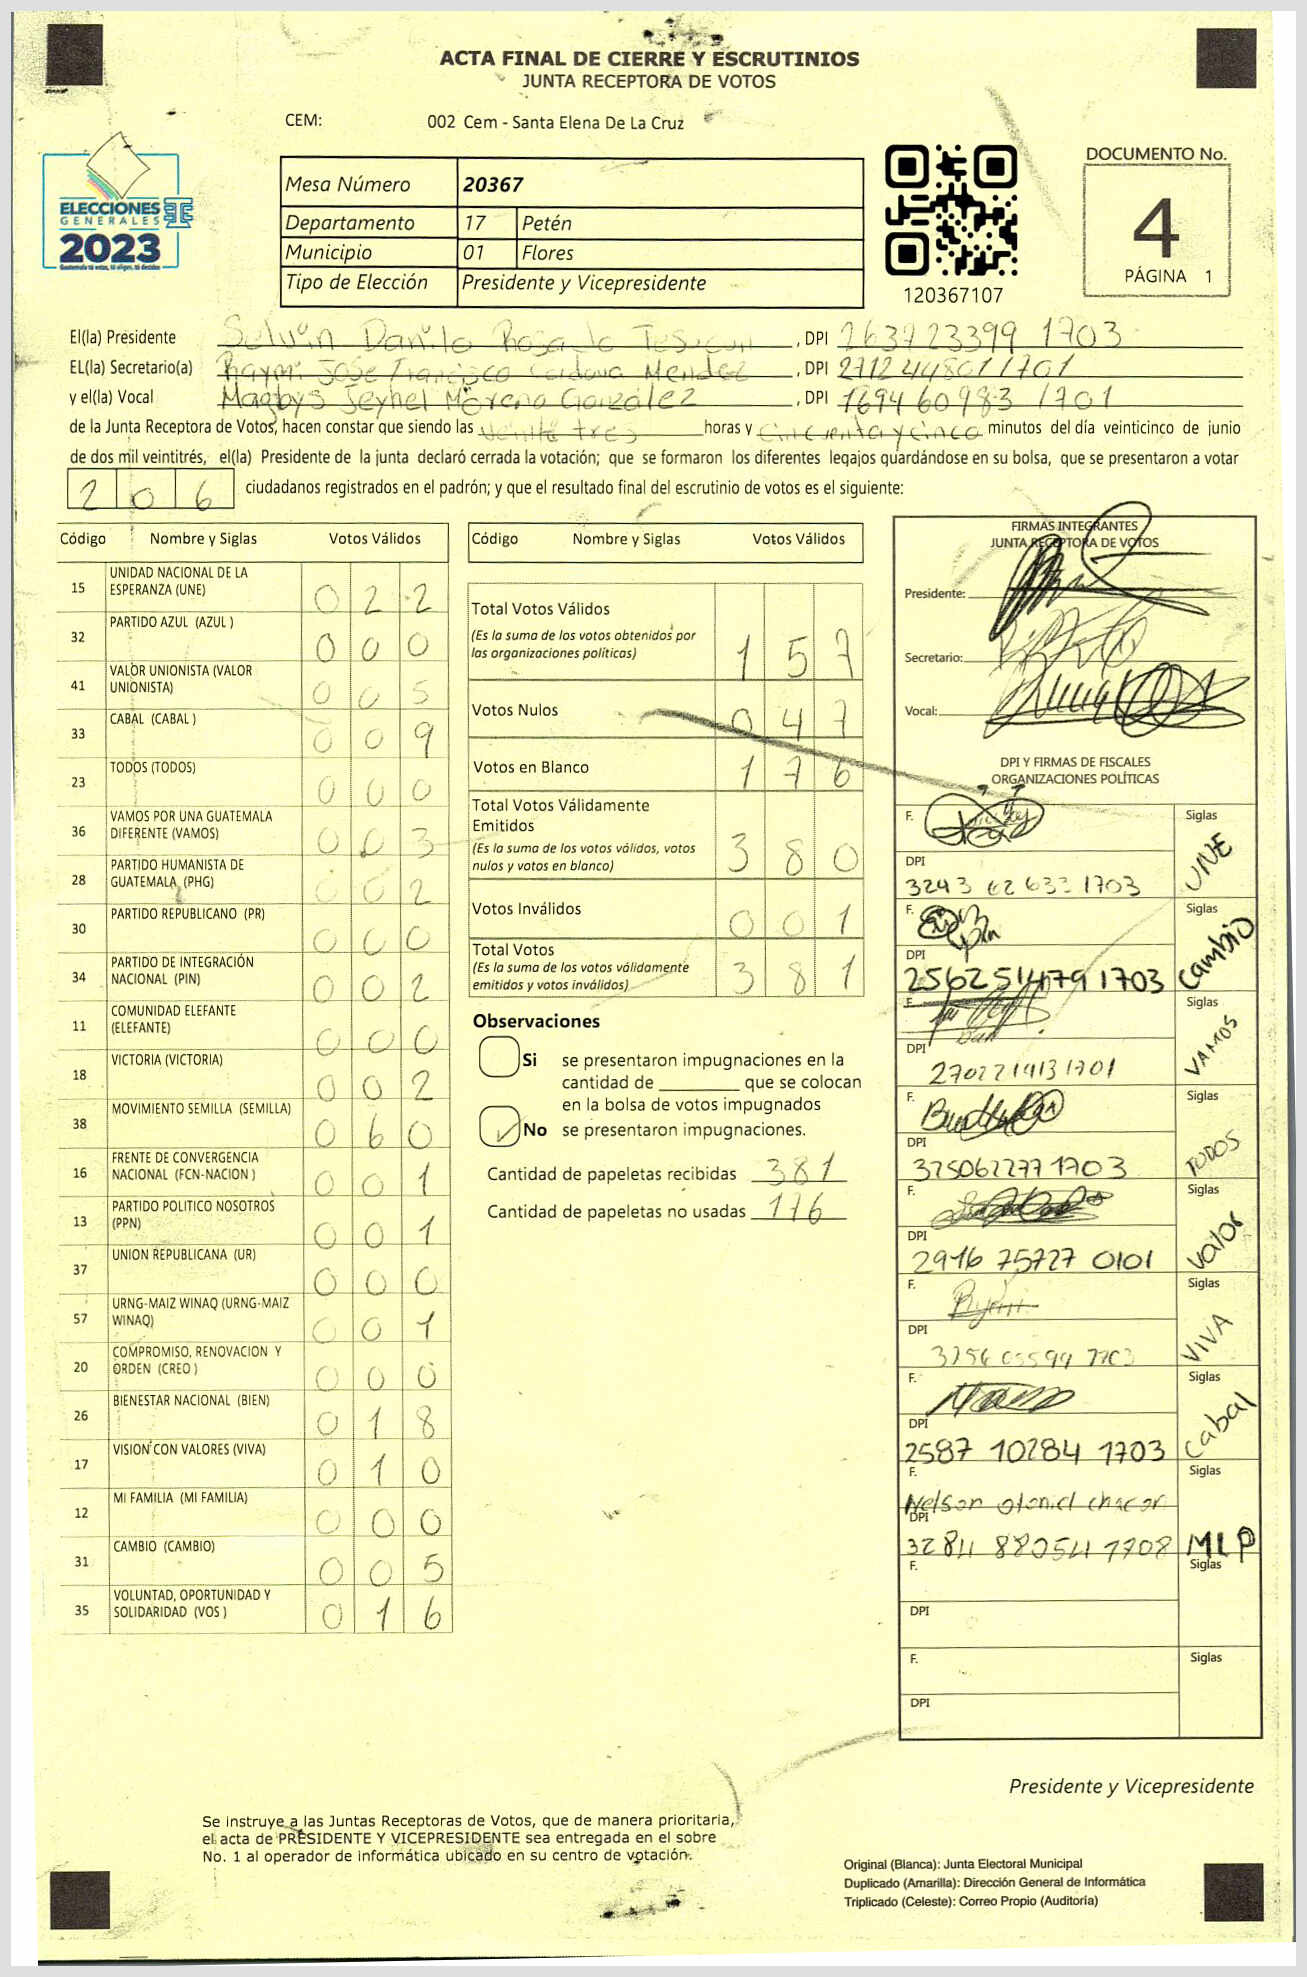 ACTA FINAL DE CIERRE Y ESCRUTINIOS
JUNTA RECEPTORA DE VOTOS
CEM: 002 Cem - Santa Elena De La Cruz
ELECCIONES
GENERALES
2023
Mesa Número 20367
Departamento 17 Petén
Municipio 01 Flores
Tipo de Elección Presidente y Vicepresidente
120367107
DOCUMENTO No.
4
PÁGINA 1
El(la) Presidente Selvin Danilo Rosado , DPI 263723399 1703
EL(la) Secretario(a) Raymi José Francisco Cordova Mendez , DPI 2712448011701
y el(la) Vocal Magbys Jeyhel Moreno González , DPI 1694609831701
de la Junta Receptora de Votos, hacen constar que siendo las veinte tres horas y cincuenta y cinco minutos del día veinticinco de junio
de dos mil veintitrés, el(la) Presidente de la junta declaró cerrada la votación; que se formaron los diferentes legajos guardándose en su bolsa, que se presentaron a votar
206 ciudadanos registrados en el padrón; y que el resultado final del escrutinio de votos es el siguiente:
Código Nombre y Siglas Votos Válidos
15 UNIDAD NACIONAL DE LA ESPERANZA (UNE) 022
32 PARTIDO AZUL (AZUL ) 000
41 VALOR UNIONISTA (VALOR UNIONISTA) 005
33 CABAL (CABAL ) 009
23 TODOS (TODOS) 000
36 VAMOS POR UNA GUATEMALA DIFERENTE (VAMOS) 003
28 PARTIDO HUMANISTA DE GUATEMALA (PHG) 002
30 PARTIDO REPUBLICANO (PR) 000
34 PARTIDO DE INTEGRACIÓN NACIONAL (PIN) 002
11 COMUNIDAD ELEFANTE (ELEFANTE) 000
18 VICTORIA (VICTORIA) 002
38 MOVIMIENTO SEMILLA (SEMILLA) 060
16 FRENTE DE CONVERGENCIA NACIONAL (FCN-NACION ) 001
13 PARTIDO POLITICO NOSOTROS (PPN) 001
37 UNION REPUBLICANA (UR) 000
57 URNG-MAIZ WINAQ (URNG-MAIZ WINAQ) 001
20 COMPROMISO, RENOVACION Y ORDEN (CREO ) 000
26 BIENESTAR NACIONAL (BIEN) 018
17 VISION CON VALORES (VIVA) 010
12 MI FAMILIA (MI FAMILIA) 000
31 CAMBIO (CAMBIO) 005
35 VOLUNTAD, OPORTUNIDAD Y SOLIDARIDAD (VOS ) 016
Código Nombre y Siglas Votos Válidos
Total Votos Válidos
(Es la suma de los votos obtenidos por
las organizaciones políticas) 157
Votos Nulos 047
Votos en Blanco 176
Total Votos Válidamente
Emitidos
(Es la suma de los votos válidos, votos
nulos y votos en blanco) 380
Votos Inválidos 001
Total Votos
(Es la suma de los votos válidamente
emitidos y votos inválidos) 381
Observaciones
Si se presentaron impugnaciones en la
cantidad de ________ que se colocan
en la bolsa de votos impugnados
No se presentaron impugnaciones.
Cantidad de papeletas recibidas 381
Cantidad de papeletas no usadas 176
FIRMAS INTEGRANTES
JUNTA RECEPTORA DE VOTOS
Presidente:
Secretario:
Vocal:
DPI Y FIRMAS DE FISCALES
ORGANIZACIONES POLÍTICAS
F. Siglas UNE
DPI
3243 62 633 1703
F. Siglas Cambio
DPI
2562514791703
F. Siglas VAMOS
DPI
2702219131701
F. Siglas TODOS
DPI
3750622771703
F. Siglas Valor
DPI
2916 75727 0101
F. Siglas VIVA
DPI
F. Siglas Cabal
DPI
2587 10284 1703
F. Siglas MLP
Nelson otoniel chacon
DPI
3284 88054 1708
F. Siglas
DPI
F. Siglas
DPI
Presidente y Vicepresidente
Se instruye a las Juntas Receptoras de Votos, que de manera prioritaria,
el acta de PRESIDENTE Y VICEPRESIDENTE sea entregada en el sobre
No. 1 al operador de informática ubicado en su centro de votación.
Original (Blanca): Junta Electoral Municipal
Duplicado (Amarilla): Dirección General de Informática
Triplicado (Celeste): Correo Propio (Auditoría)